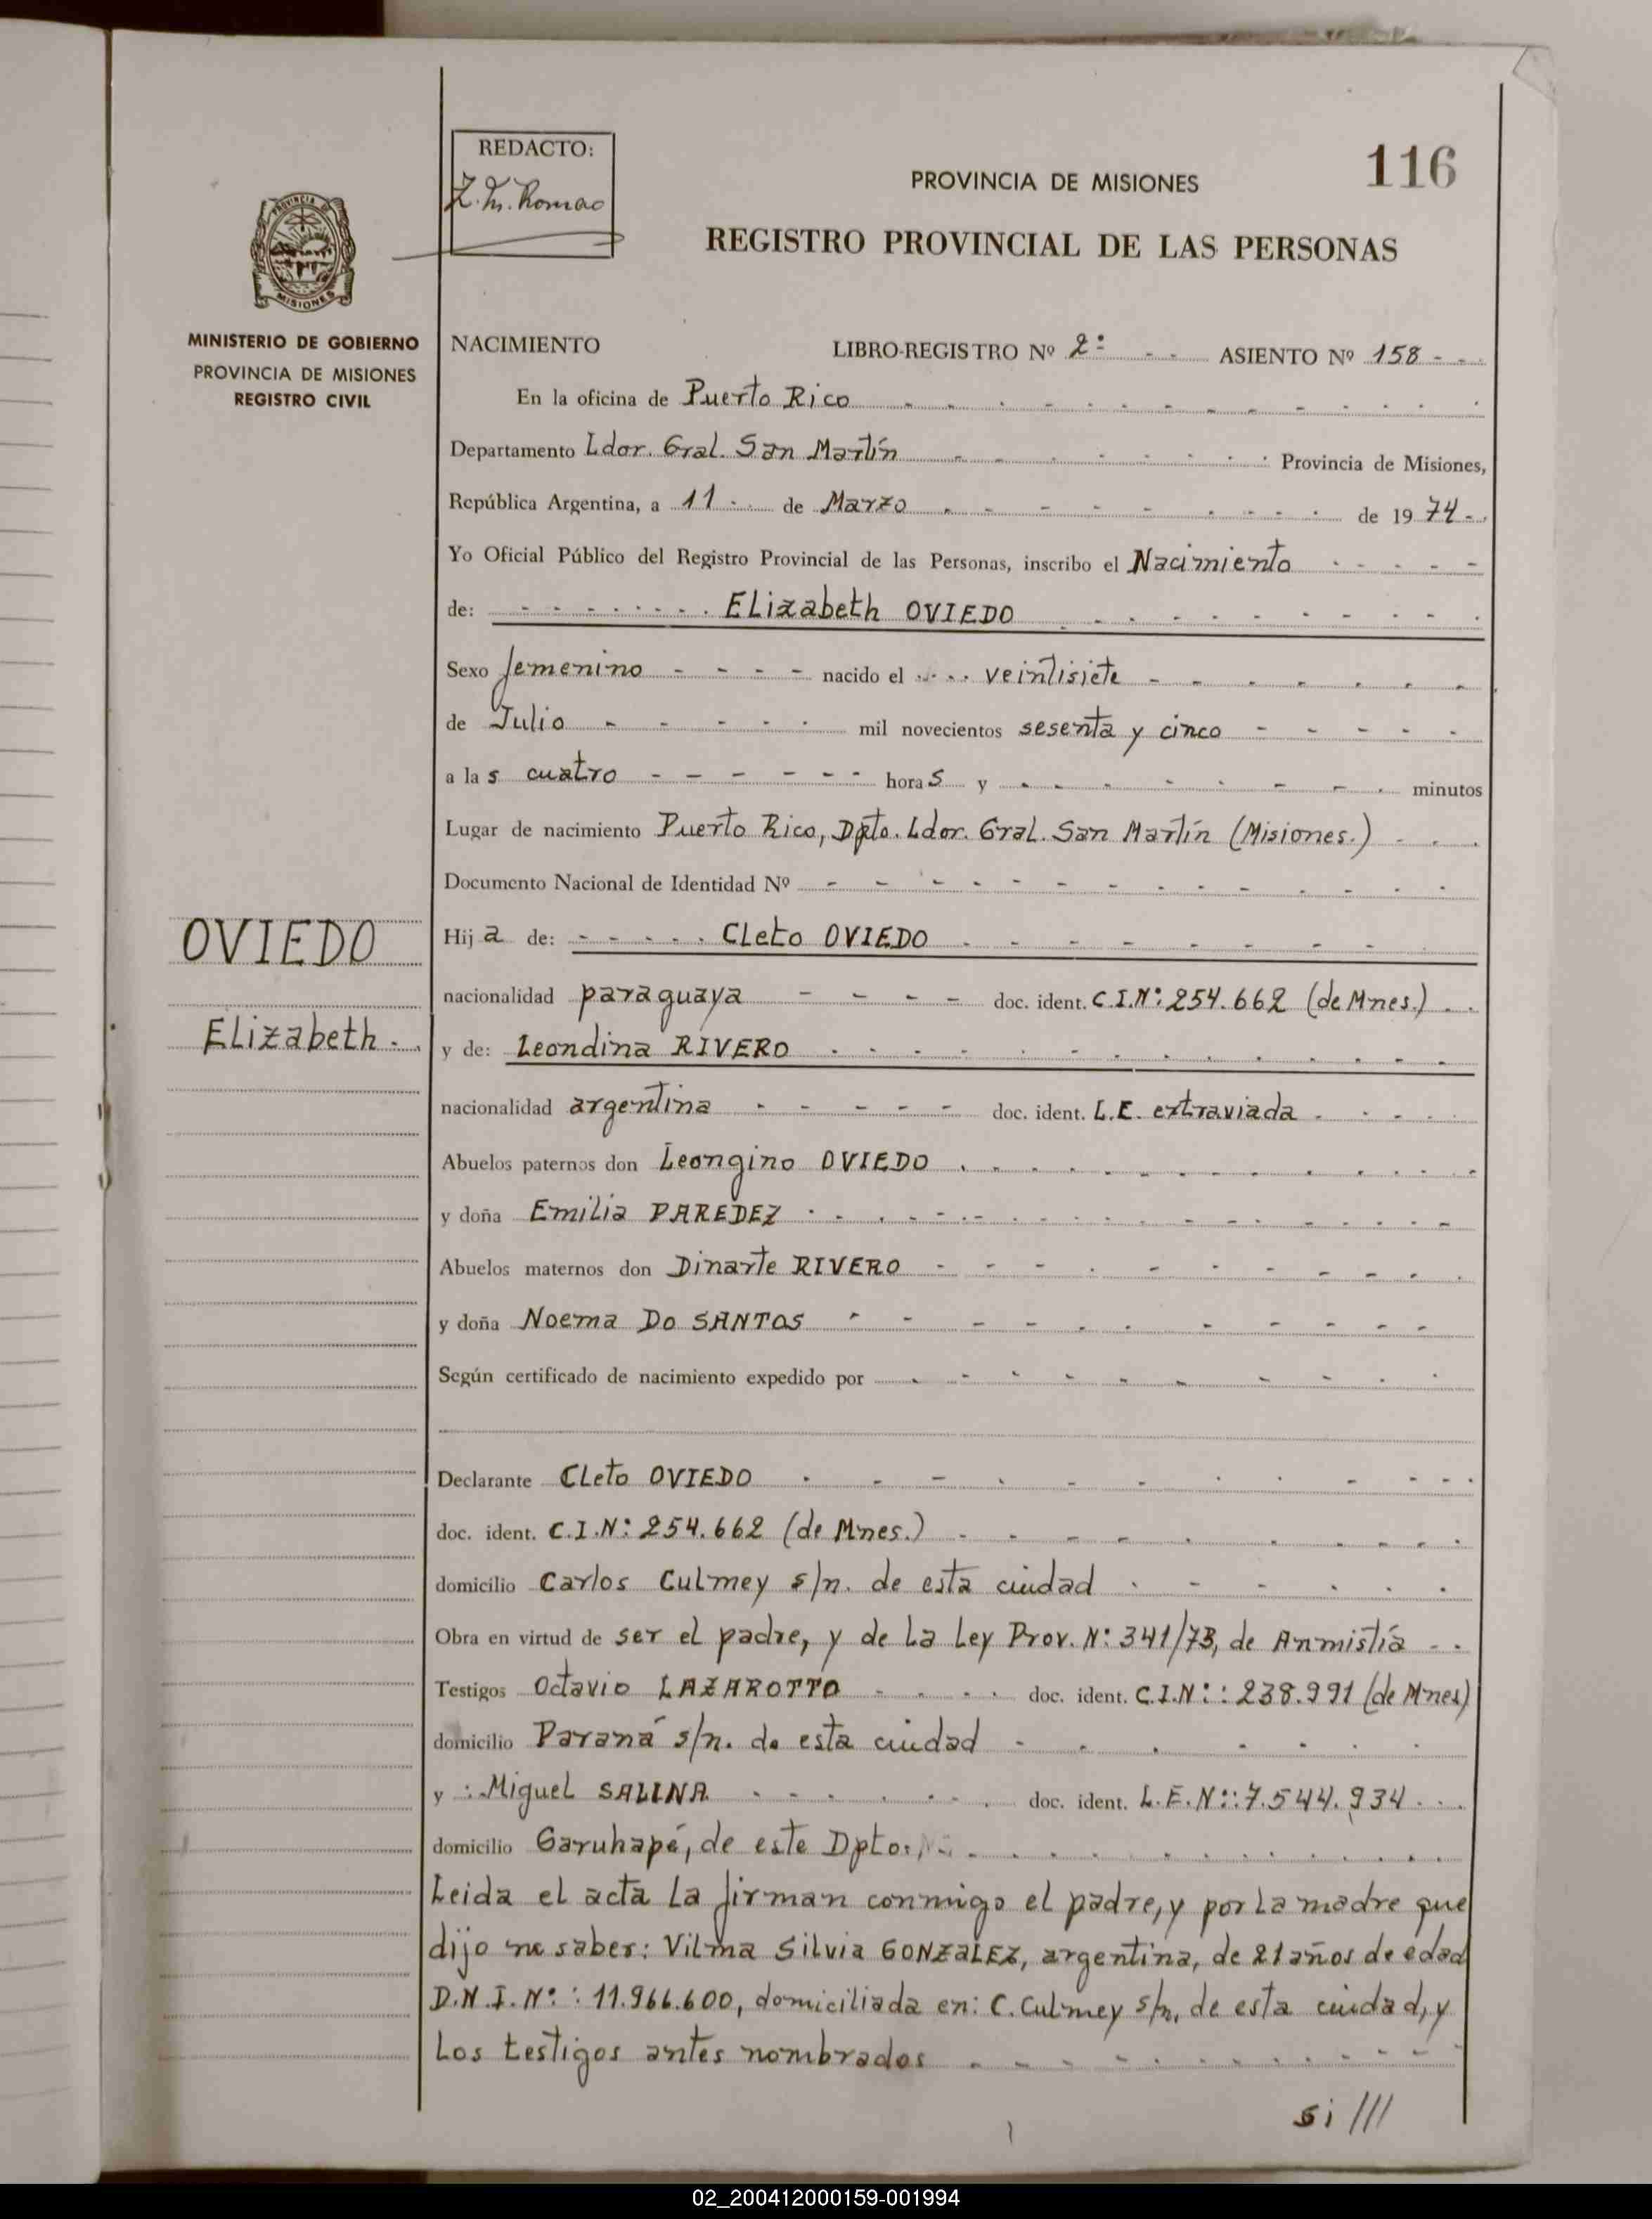 REDACTO:
Z. M. Romao
116
PROVINCIA DE MISIONES
REGISTRO PROVINCIAL DE LAS PERSONAS
PROVINCIA DE
MISIONES
MINISTERIO DE GOBIERNO
PROVINCIA DE MISIONES
REGISTRO CIVIL
NACIMIENTO LIBRO-REGISTRO Nº 2º - - ASIENTO Nº 158 - -
En la oficina de Puerto Rico
Departamento Ldor. Gral. San Martín Provincia de Misiones,
República Argentina, a 11 - de Marzo de 1974-.
Yo Oficial Público del Registro Provincial de las Personas, inscribo el Nacimiento
de: ELizabeth OVIEDO
Sexo femenino nacido el veintisiete
de Julio mil novecientos sesenta y cinco
a las cuatro horas y minutos
Lugar de nacimiento Puerto Rico, Dpto. Ldor. Gral. San Martín (Misiones.)
Documento Nacional de Identidad Nº
OVIEDO
Elizabeth
Hija de: CLeto OVIEDO
nacionalidad paraguaya doc. ident. C.I.Nº: 254.662 (de Mnes.)
y de: Leondina RIVERO
nacionalidad argentina doc. ident. L.E. extraviada
Abuelos paternos don Leongino OVIEDO
y doña Emilia PAREDEZ
Abuelos maternos don Dinarte RIVERO
y doña Noema Do SANTOS
Según certificado de nacimiento expedido por
Declarante CLeto OVIEDO
doc. ident. C.I.Nº: 254.662 (de Mnes.)
domicilio Carlos Culmey s/n. de esta ciudad
Obra en virtud de ser el padre, y de La Ley Prov. Nº: 341/73, de Anmistía
Testigos Octavio LAZAROTTO doc. ident. C.I.Nº: 238.991 (de Mnes)
domicilio Paraná s/n. de esta ciudad
y : Miguel SALINA doc. ident. L.E.Nº: 7.544.934
domicilio Garuhapé, de este Dpto.
Leida el acta La firman conmigo el padre, y por La madre que
dijo no saber: Vilma Silvia GONZALEZ, argentina, de 21 años de edad
D.N.I.Nº: 11.966.600, domiciliada en: C. Culmey s/n, de esta ciudad, y
Los testigos antes nombrados
si ///
02_200412000159-001994